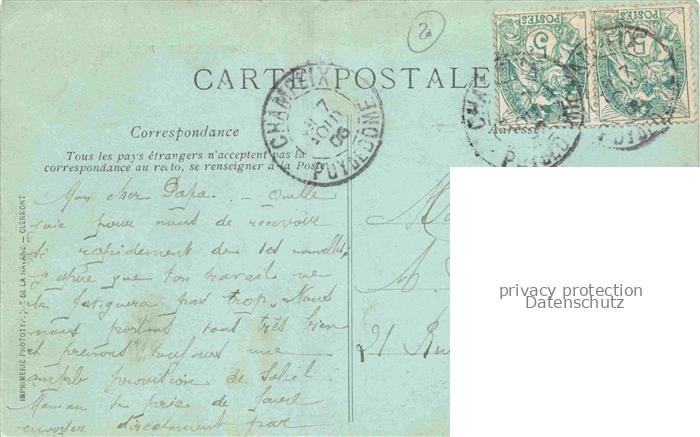 2
CARTE POSTALE
POSTES
5
POSTES
5
CHAMPEIX
7
AOUT
06
PUY DE DOME
CHAMPEIX
PUY DE DOME
PUY DE DOME
Correspondance
Adresse
Tous les pays étrangers n'acceptent pas la
correspondance au recto, se renseigner à la Poste
IMPRIMERIE PHOTOTYPIQUE DE LA HAYANE — CLERMONT
Mon cher Papa. - Quelle
joie pour nous de recevoir
si rapidement de tes nouvelles,
J'espère que ton travail ne
te fatiguera pas trop. Nous
nous portons tous très bien
et prenons toujours une
ample provision de soleil.
Maman te prie de faire
envoyer directement par
M.
21 Rue
privacy protection
Datenschutz